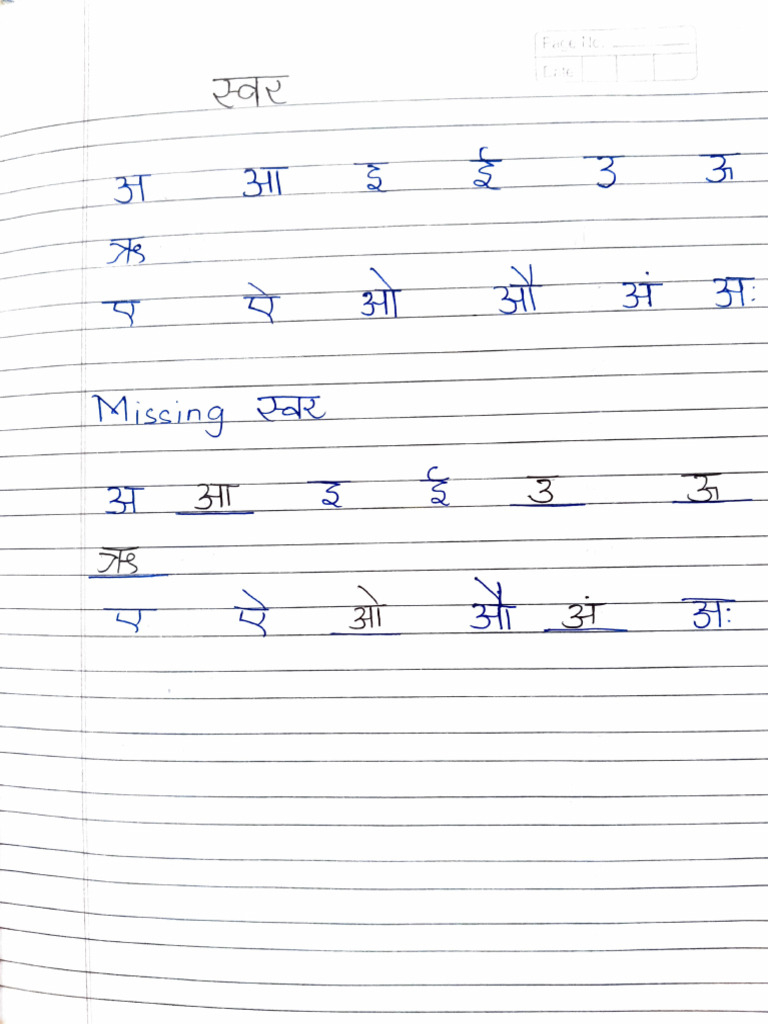 Page No.
Date
स्वर
अ आ इ ई उ ऊ
ऋ
ए ऐ ओ औ अं अः
Missing स्वर
अ आ इ ई उ ऊ
ऋ
ए ऐ ओ औ अं अः